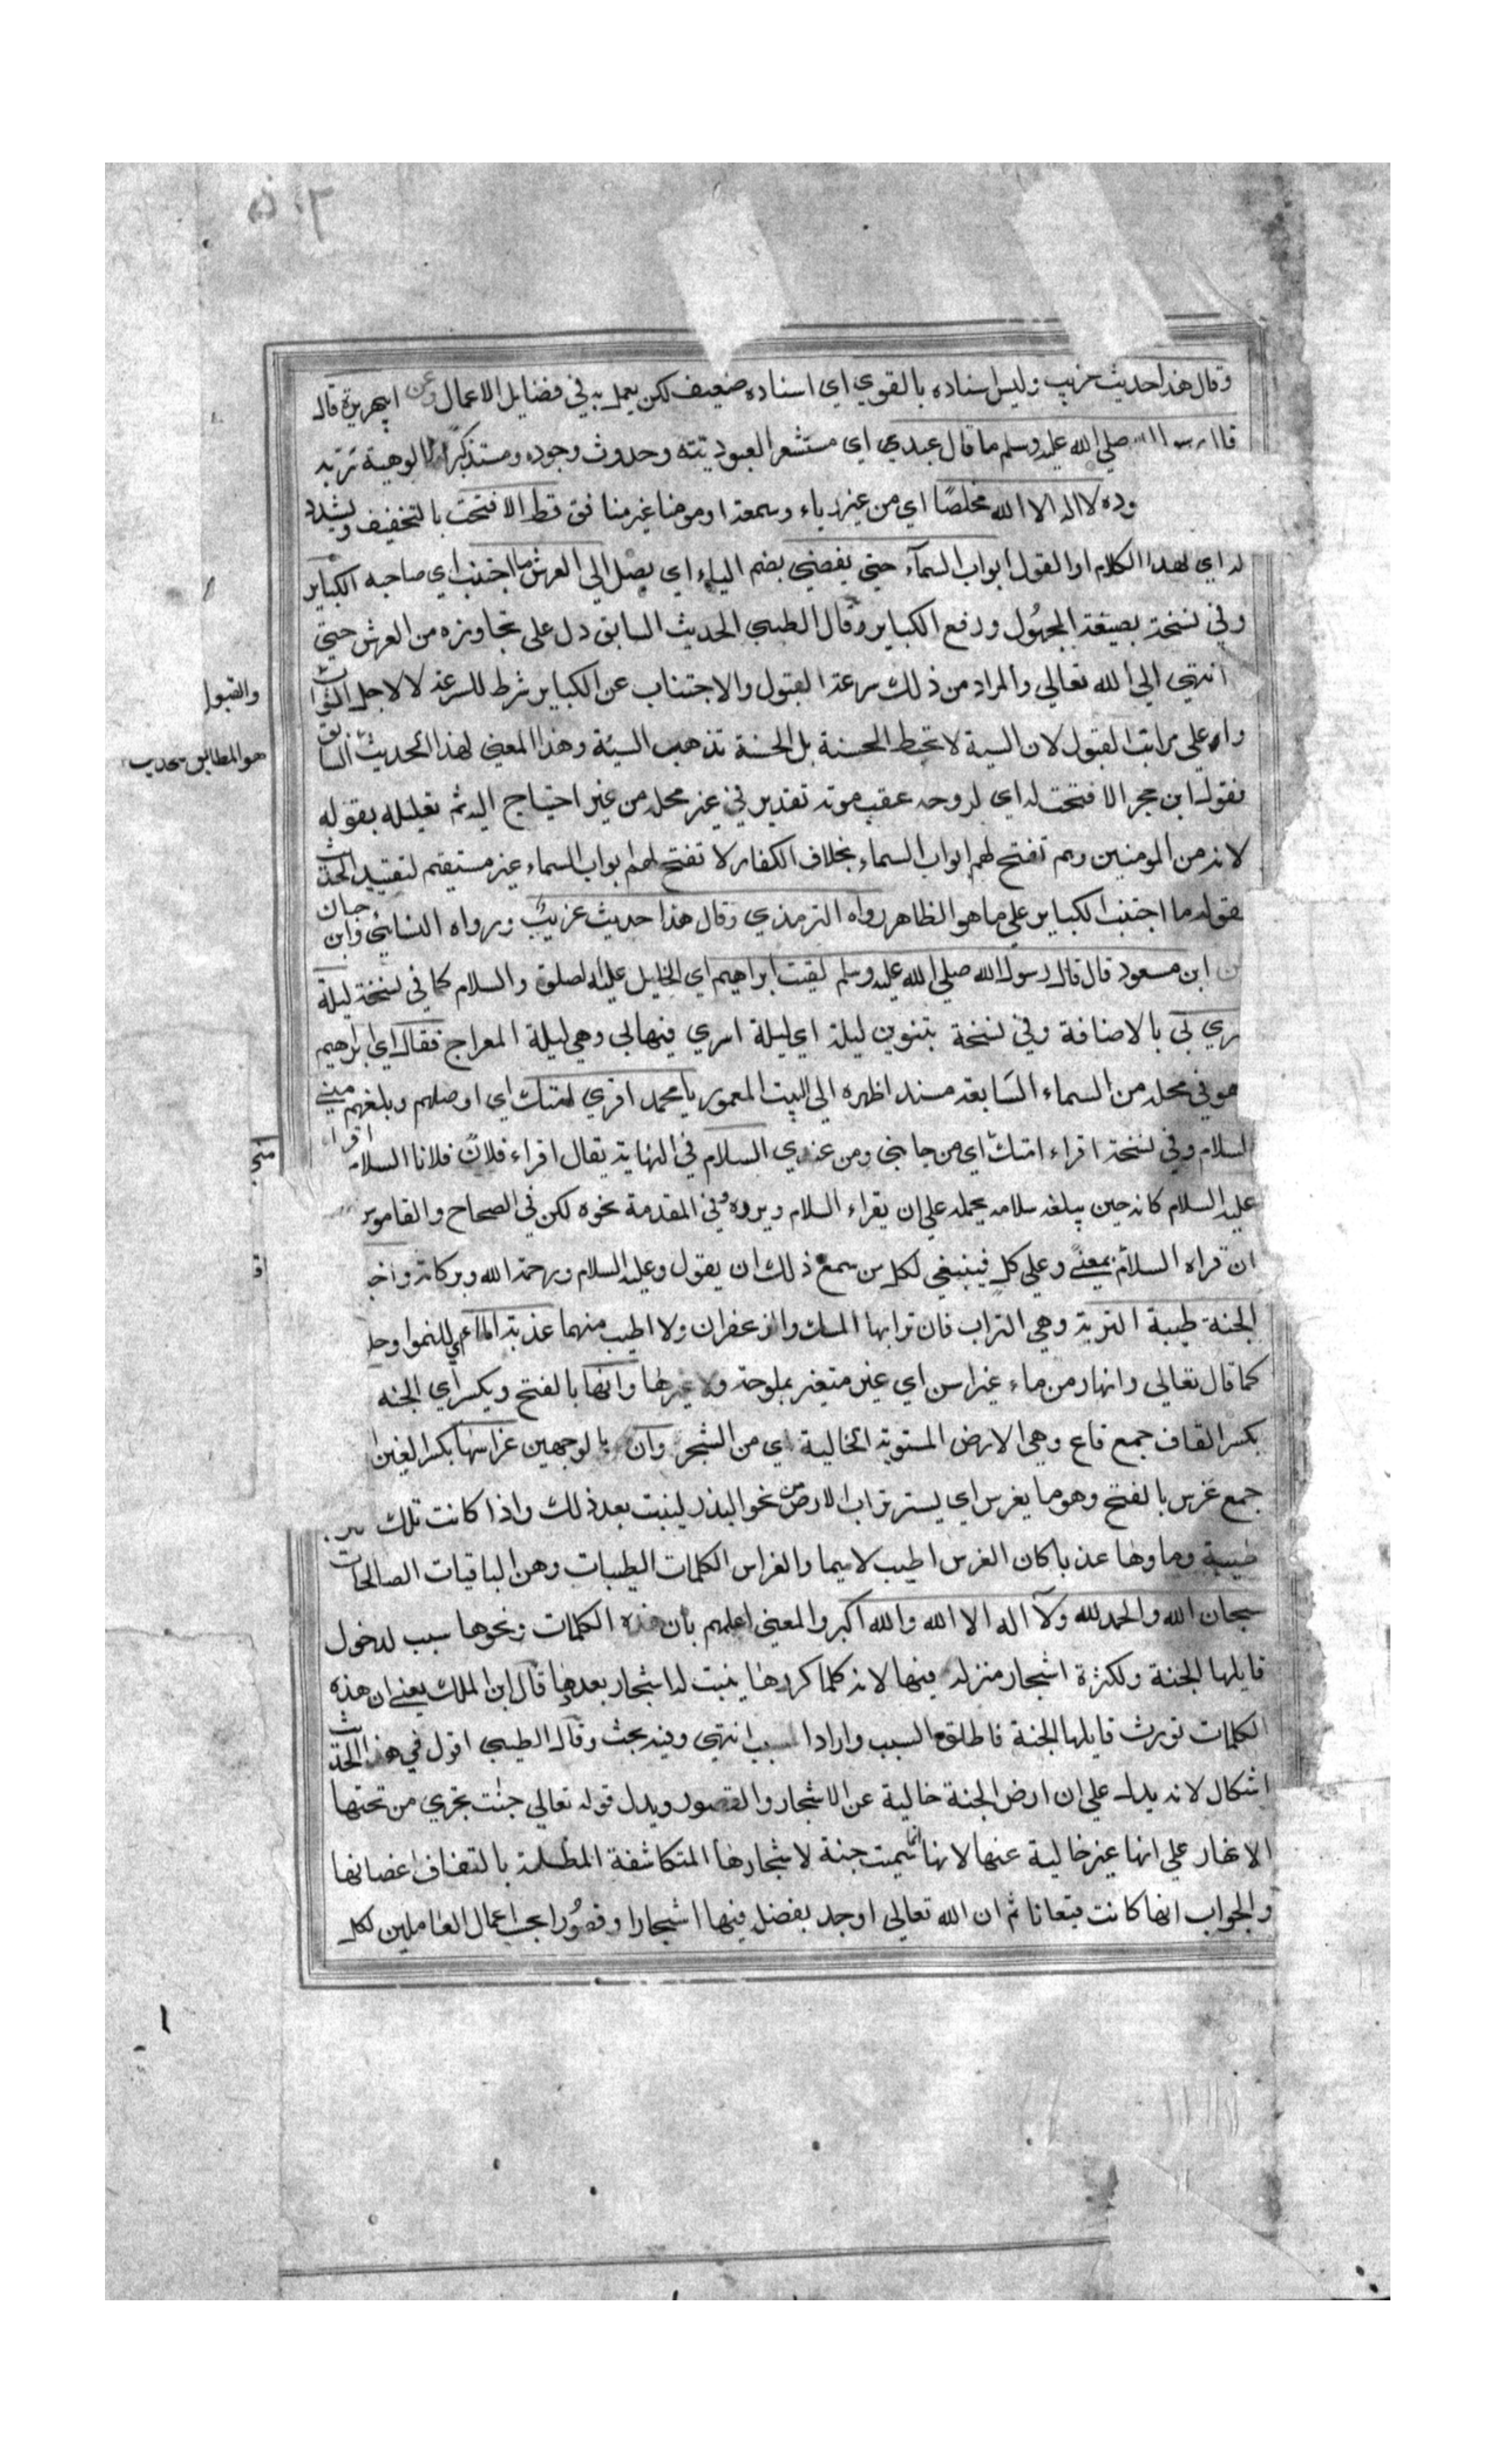 وقال هذا حديث غريب وليس اسناده بالقوي اي اسناده ضعيف لكن يعمل به في فضايل الاعمال وعن ابي هريرة قال
صلي الله عليه وسلم ما قال عبد اي مستشعر العبوديته وحدوث وجوده ومستذكرا لالوهية ربه
لا اله الا الله مخلصا اي من غير رياء وسمعة او مومنا غير منافق قط الا فتحت بالتخفيف ويشدد
له اي لهذا الكلام او القول ابواب السمآء حتي يفضي بضم الياء اي يصل الي العرش ما اجتنب اي صاحبه الكباير
وفي نسخة بصيغة المجهول ورفع الكباير وقال الطيبي الحديث السابق دل علي تجاوزه من العرش حتي
انتهي الي الله تعالي والمراد من ذلك سرعة القبول والاجتناب عن الكباير شرط للسرعة لا لاجل الثواب
والقبول
علي مراتب القبول لان السية لا تحبط الحسنة بل الحسنة تذهب السيئة وهذا المعني لهذا الحديث السابق
هو المطابق
فقول ابن حجر الا فتحت له اي لروحه عقب موته تقدير في غير محله من غير احتياج اليه ثم تعليله بقوله
لانه من المومنين وهم تفتح لهم ابواب السماء بخلاف الكفار لا تفتح لهم ابواب السماء غير مستقيم لتقييد الحديث
بقوله ما اجتنب الكباير علي ما هو الظاهر رواه الترمذي وقال هذا حديث غريب ورواه النسائي وابن حبان
ابن مسعود قال قال رسول الله صلي الله عليه وسلم لقيت ابراهيم اي الخليل عليه الصلوة والسلام كما في نسخة ليلة
بي بالاضافة وفي نسخة بتنوين ليلة اي ليلة اسري فيها بي وهي ليلة المعراج فقال اي ابراهيم
هو في محله من السماء السابعة مسند اظهره الي البيت المعمور يا محمد اقري امتك اي اوصلهم وبلغهم مني
السلام وفي نسخة اقراء امتك اي من جانبي ومن عندي السلام في النهاية يقال اقراء فلان فلانا السلام اقراء
عليه السلام كانه حين يبلغه سلامه يحمله علي ان يقراء السلام ويرده وفي المقدمة نحوه لكن في الصحاح والقاموس
ان قراه السلام بمعني وعلي كل فينبغي لكل من سمع ذلك ان يقول وعليه السلام ورحمة الله وبركاته
الجنة طيبة التربة وهي التراب فان ترابها المسك والزعفران ولا اطيب منهما عذبة الماء
كما قال تعالي وانهار من ماء غير اسن اي غير متغير بملوحة ولا غيرها وانها بالفتح ويكسر اي الجنه
بكسر القاف جمع قاع وهي الارض المستوية الخالية اي من الشجر وان بالوجهين غراسها بكسر الغين
جمع غرس بالفتح وهو ما يغرس اي يستر تراب الارض من نحو البذر لينبت بعد ذلك واذا كانت تلك
طيبة وماوها عذبا كان الغرس اطيب لا سيما والغراس الكلمات الطيبات وهن الباقيات الصالحات
سبحان الله والحمد لله ولا اله الا الله والله اكبر والمعني اعلمهم بان هذه الكلمات ونحوها سبب لدخول
قايلها الجنة ولكثرة اشجار منزله فيها لانه كلما كررها ينبت له اشجار بعدها قال ابن الملك يعني ان هذه
الكلمات تورث قايلها الجنة فاطلق السبب واراد المسبب انتهي وفيه بحث وقال الطيبي اقول في هذا الحديث
اشكال لانه يدل علي ان ارض الجنة خالية عن الاشجار والقصور ويدل قوله تعالي جنت تجري من تحتها
الانهار علي انها غير خالية عنها لانها انما سميت جنة لاشجارها المتكاثفة المظلة بالتفاف اغصانها
والجواب انها كانت قيعانا ثم ان الله تعالي اوجد بفضل فيها اشجارا وقصورا بحسب اعمال العاملين لكل